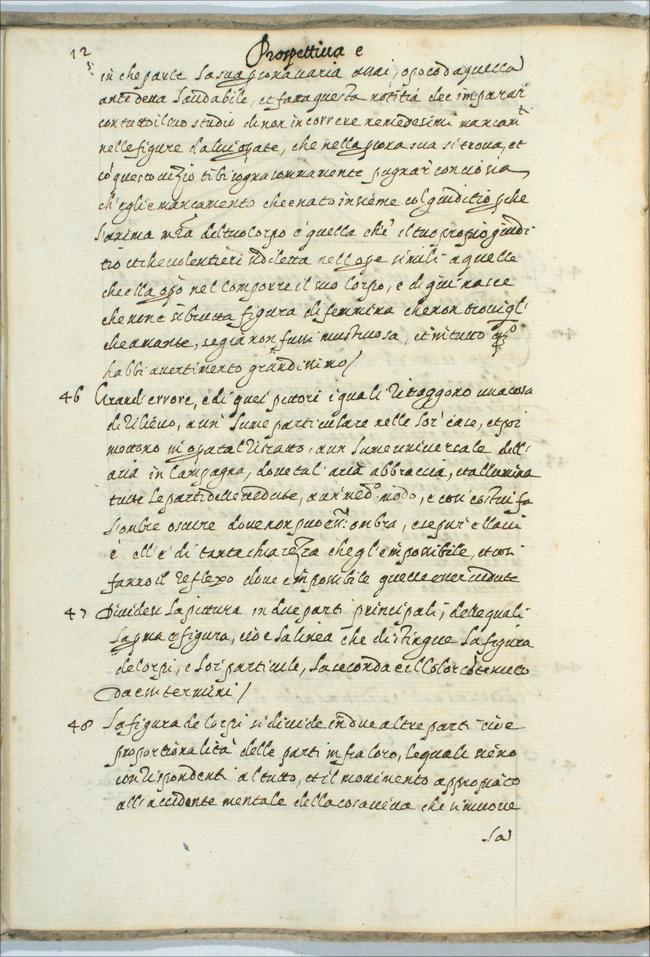 12
Prospettiua e
in che parte la sua psona uaria assai, o poco da quella
antedetta laudabile, et fatta questa notitia dee imparar
con tutto il suo studio di non incorrere ne medesimi mancam.ti
nelle figure da lui opate, che nella psona sua si troua, et
co questo uizio ti bisogna sommamente pugnar conciosia
ch'egli è mancamento che è nato insieme col giuditio pche
l'anima m̃ra del tuo corpo è quella ch'è il tuo proprio giudi
tio et che uolentieri si diletta nell'ope simili a quelle
che ella opò nel comporre il suo corpo, e di qui nasce
che non è si brutta figura di femmina che non trouj q̃l
che amante, se gia non fussi mostruosa, et in tutto q̃sto
habbi auertimento grandissimo/
46 Grand'errore, è di quei pittori i quali ritraggono una cosa
di rilieuo, a un' lume particulare nelle lor' case, et poi
mettono in opa tal ritratto, a un lume uniuersale dell'
aria in campagna, doue tal' aria abbraccia, et allumina
tutte le parti delle uedute, a un' med.o modo, e così costui fa
l'ombre oscure doue non può ẽēr' ombra, e se pur' ella ui
è ell'è di tanta chiarezza che gl'è impossibile, et così
fanno il reflexo doue è impossibile quello esser ueduto
47 Diuidesi la pittura in due parti principali, delle quali
la pma è figura, cioè la linea che distingue la figura
de corpi, e lor' particule, la seconda è il Color cotenuto
da essi termini/
48 La figura de corpi si diuide in due altre parti cioè
proportionalità delle parti infra loro, le quali sieno
corrispondenti al tutto, et il mouimento appropiato
allo accidente mentale della cosa uiua che si muoue
La